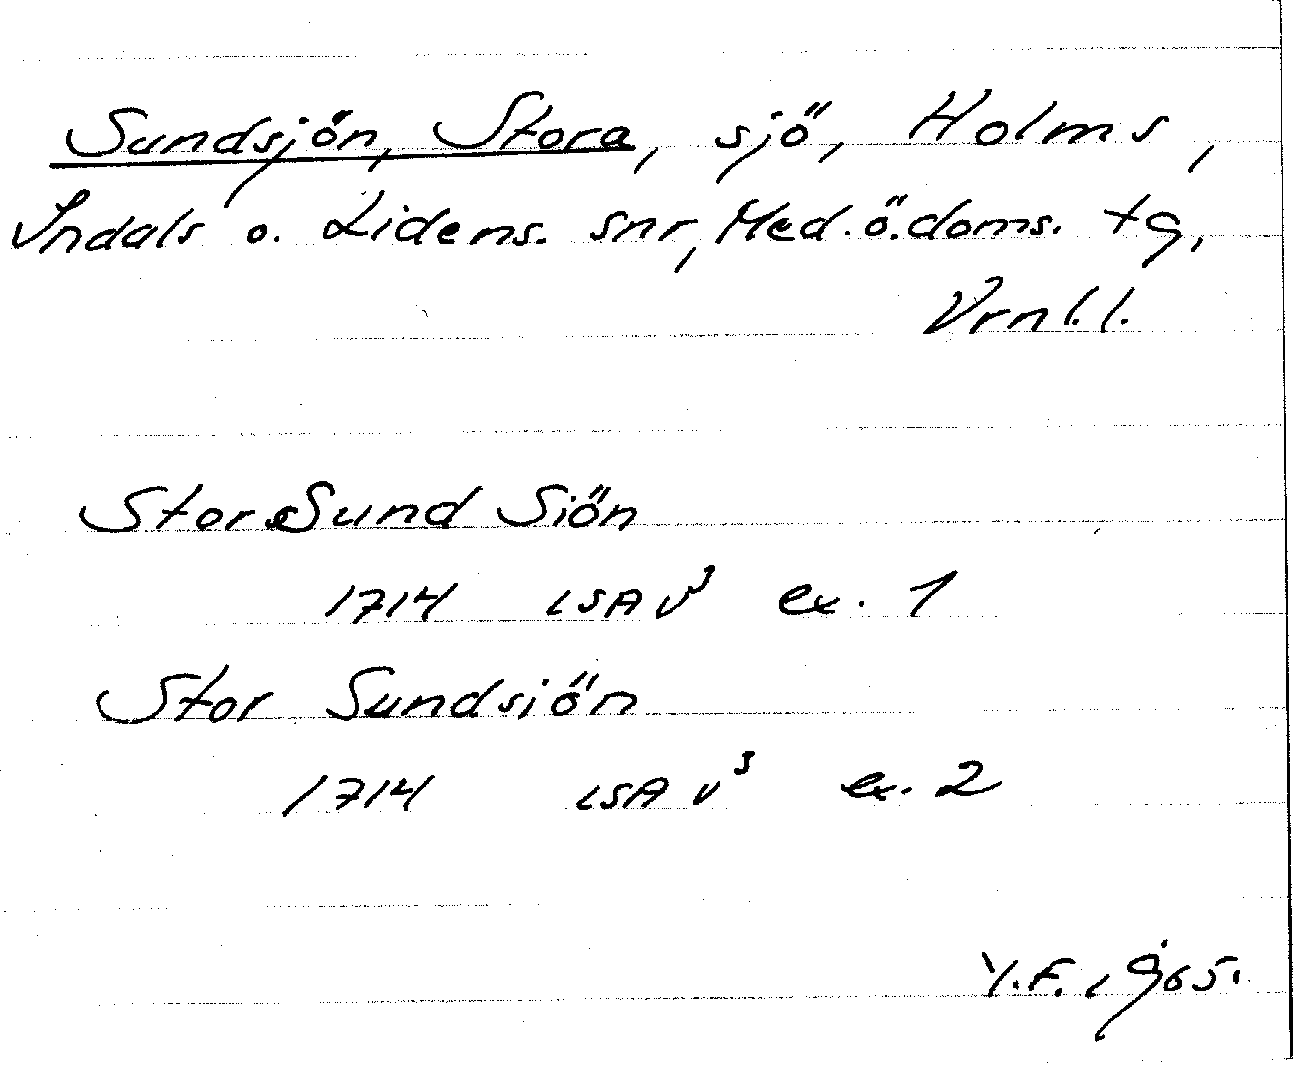 Sundsjön, Stora, sjö, Holms,
Indals o. Lidens. snr, Med.ö.doms. tg,
Vrnl.l.
Stor Sund Siön
1714 LSA V³ ex. 1
Stor Sundsiön
1714 LSA V³ ex. 2
Y.F. 1965.